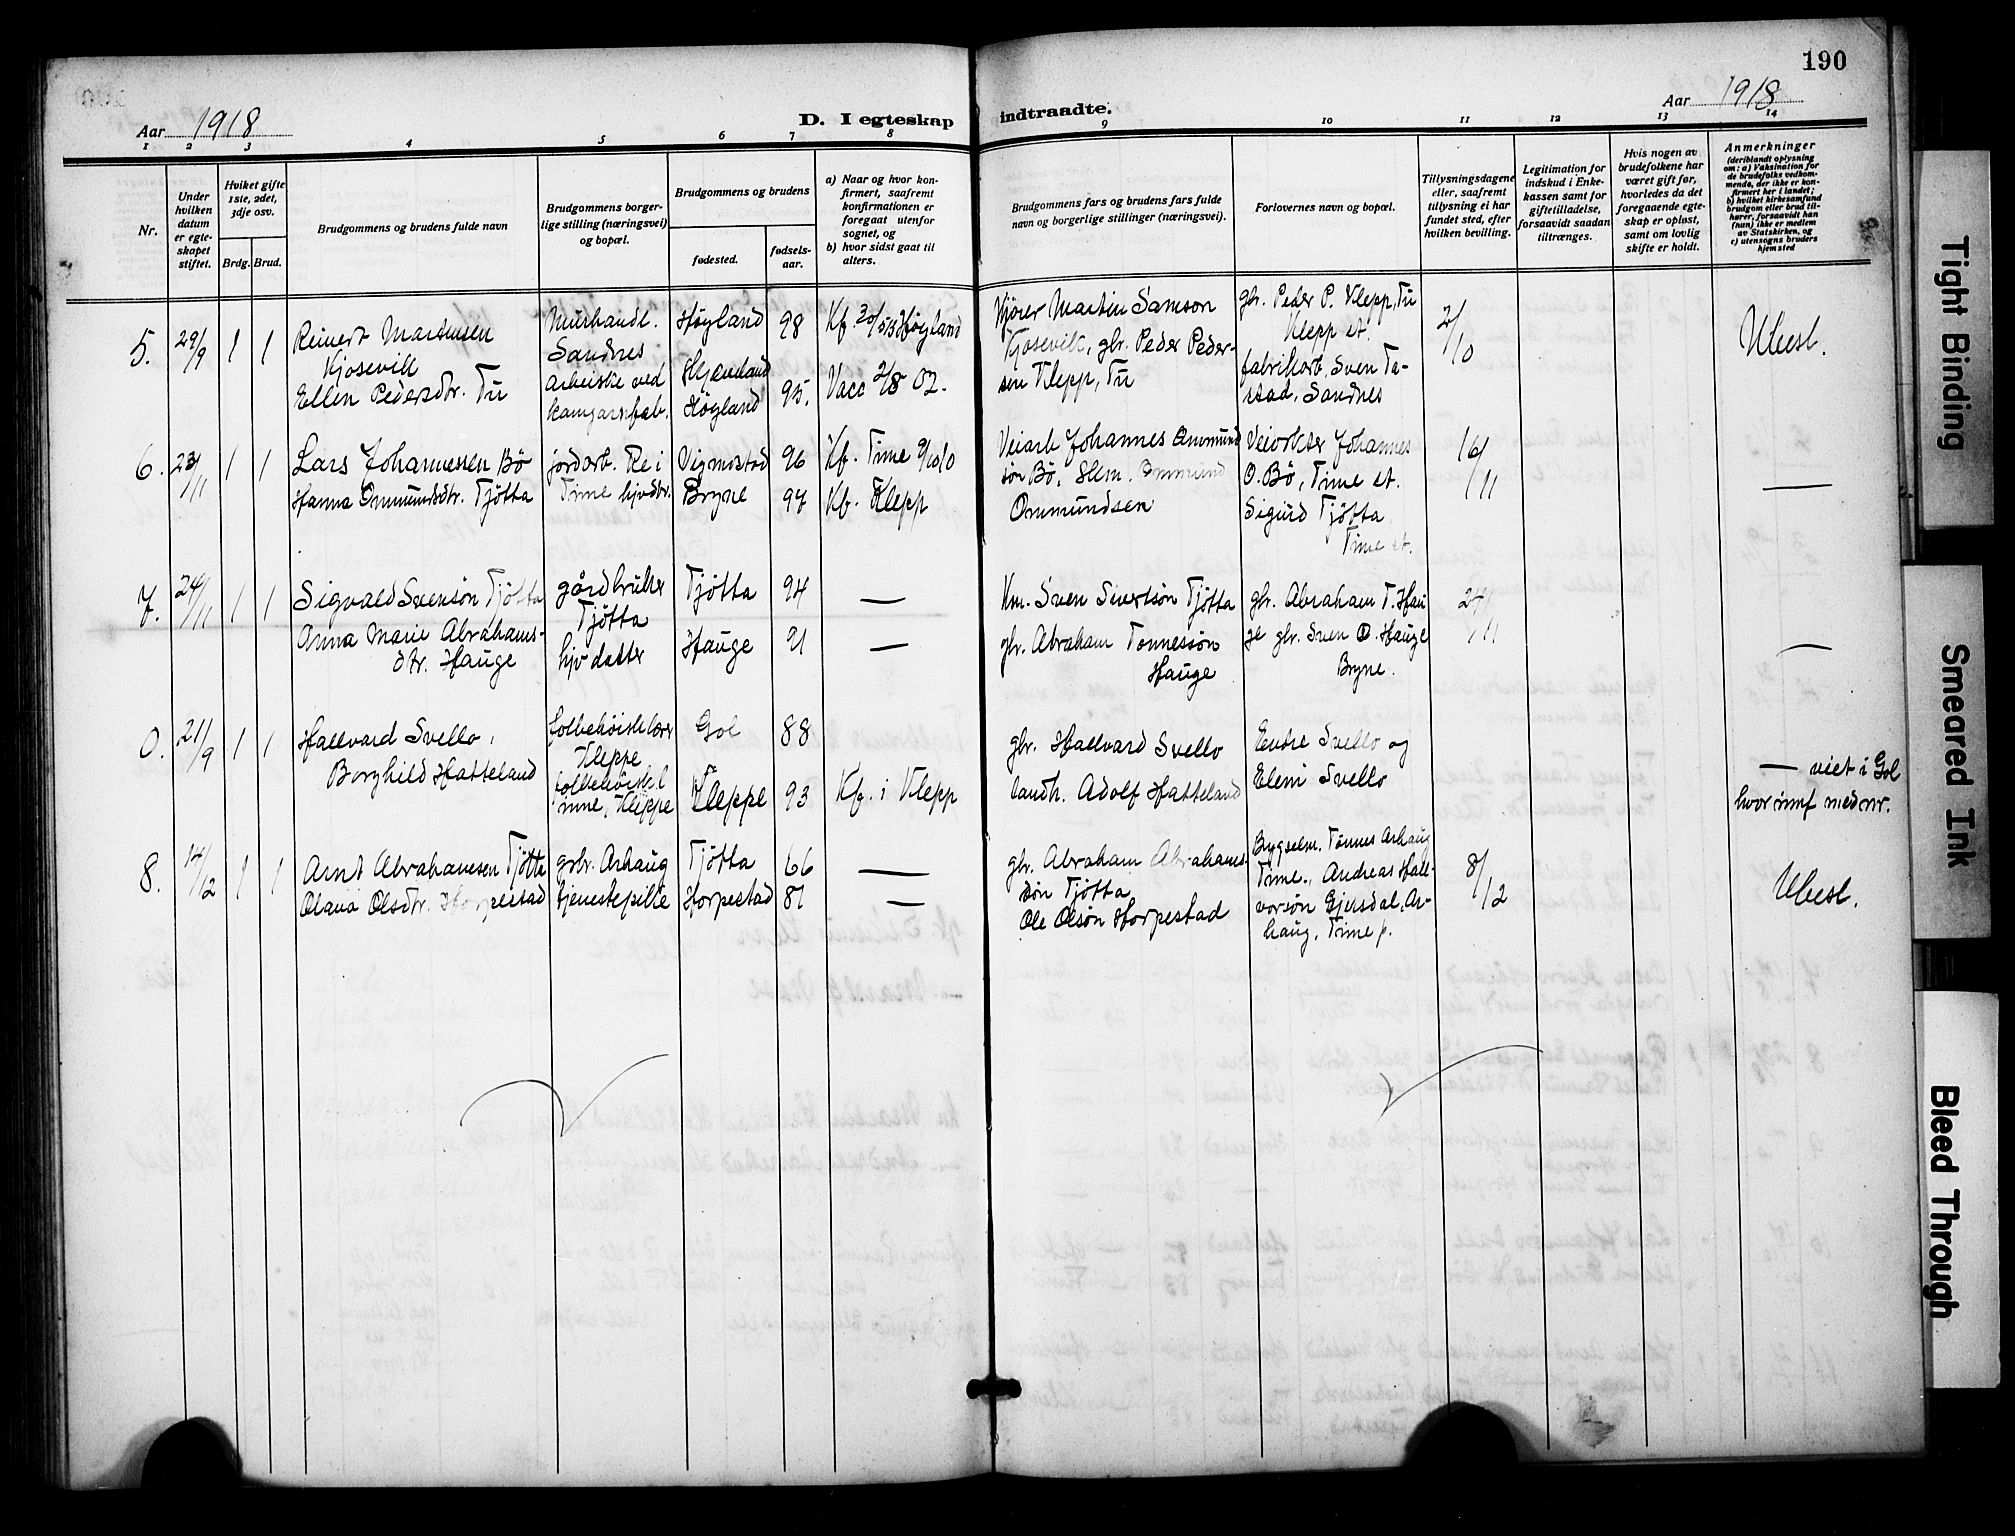 190
Aar 1918
D. I egteskap indtraadte.
Aar 1918.
1 2 3 4 5 6 7 8 9 10 11 12 13 14
Nr.
Under hvilken datum er egteskapet stiftet.
Hvilket gifte 1ste, 2det, 3dje osv.
Brdg. Brud.
Brudgommens og brudens fulde navn
Brudgommens borgerlige stilling (næringsvei) og bopæl.
Brudgommens og brudens
fødested.
fødselsaar.
a) Naar og hvor konfirmert, saafremt konfirmationen er foregaat utenfor sognet, og
b) hvor sidst gaat til alters.
Brudgommens fars og brudens fars fulde navn og borgerlige stillinger (næringsvei).
Forlovernes navn og bopæl.
Tillysningsdagene eller, saafremt tillysning ei har fundet sted, efter hvilken bevilling.
Legitimation for indskud i Enkekassen samt for giftetilladelse, forsaavidt saadan tiltrænges.
Hvis nogen av brudefolkene har været gift før, hvorledes da det foregaaende egteskap er opløst, samt om lovlig skifte er holdt.
Anmerkninger
(deriblandt oplysning om: a) Vaksination for de brudefolks vedkommende, der ikke er konfirmert her i landet; b) hvilket kirkesamfund brudgom eller brud tilhører, forsaavidt han (hun) ikke er medlem av Statskirken, og c) utensogns bruders hjemsted
5. 29/9 1 1
Reinert Martinsen
Kjosevik
Ellen Pedersdtr. Tu
Sandnes
Arbeiske ved
kamgarnfab.
Høyland 98
Høyland 95.
Kf. 30/5 13 Høyland
Vacc 2/8 02.
Kjører Martin Samson
Kjosevik, gbr. Peder Peder-
sen Klepp, Tu
gbr. Peder P. Klepp, Tu
Klepp st.
fabrikarb. Sven Ta-
stad, Sandnes
2/10
Ubesl.
6. 23/11 1 1
Lars Johannessen Bø
Hanna Ommundsdtr. Tjøtta
jordarb. Re i
Time hjvdtr.
Vigmostad 96
Bryne 97
Kf. Time 9/10 10
Kf. Klepp
Veiarb Johannes Ommund
søn Bø, Hlm. Ommund
Ommundsen
Veivokter Johannes
O. Bø, Time st.
Sigurd Tjøtta
Time st.
16/11
—
7. 24/11 1 1
Sigvald Svensøn Tjøtta
Anna Marie Abrahams-
dtr. Hauge
gårdbruker
Tjøtta
hjv datter
Tjøtta 94
Hauge 91
—
—
Km. Sven Sivertsøn Tjøtta
gbr. Abraham Tønnessøn
Hauge
gbr. Abraham T. Hau
ge gbr. Sven O. Hauge
Bryne.
24/11
—
0. 21/9 1 1
Hallvard Svello,
Borghild Hatteland
folkehøiskelærer
Kleppe
folkehøiskel
inne, Kleppe
Gol 88
Kleppe 93
Kf. i Klepp
gbr. Hallvard Svello
landh. Adolf Hatteland
Endre Svello og
Eleni Svello
— viet i Gol
hvor innf med nr.
8. 14/12 1 1
Arnt Abrahamsen Tjøtta
Olava Olsdtr. Horpestad
gbr. Arhaug
tjenestepike
Tjøtta 66
Horpestad 87
—
—
gbr. Abraham Abrahams-
søn Tjøtta
Ole Olsøn Horpestad
Bygselm. Tønnes Arhaug
Time., Andreas Hall-
vorsøn Gjesdal, Ar-
haug, Time p.
8/12
Ubesl.
Tight Binding
Smeared Ink
Bleed Through